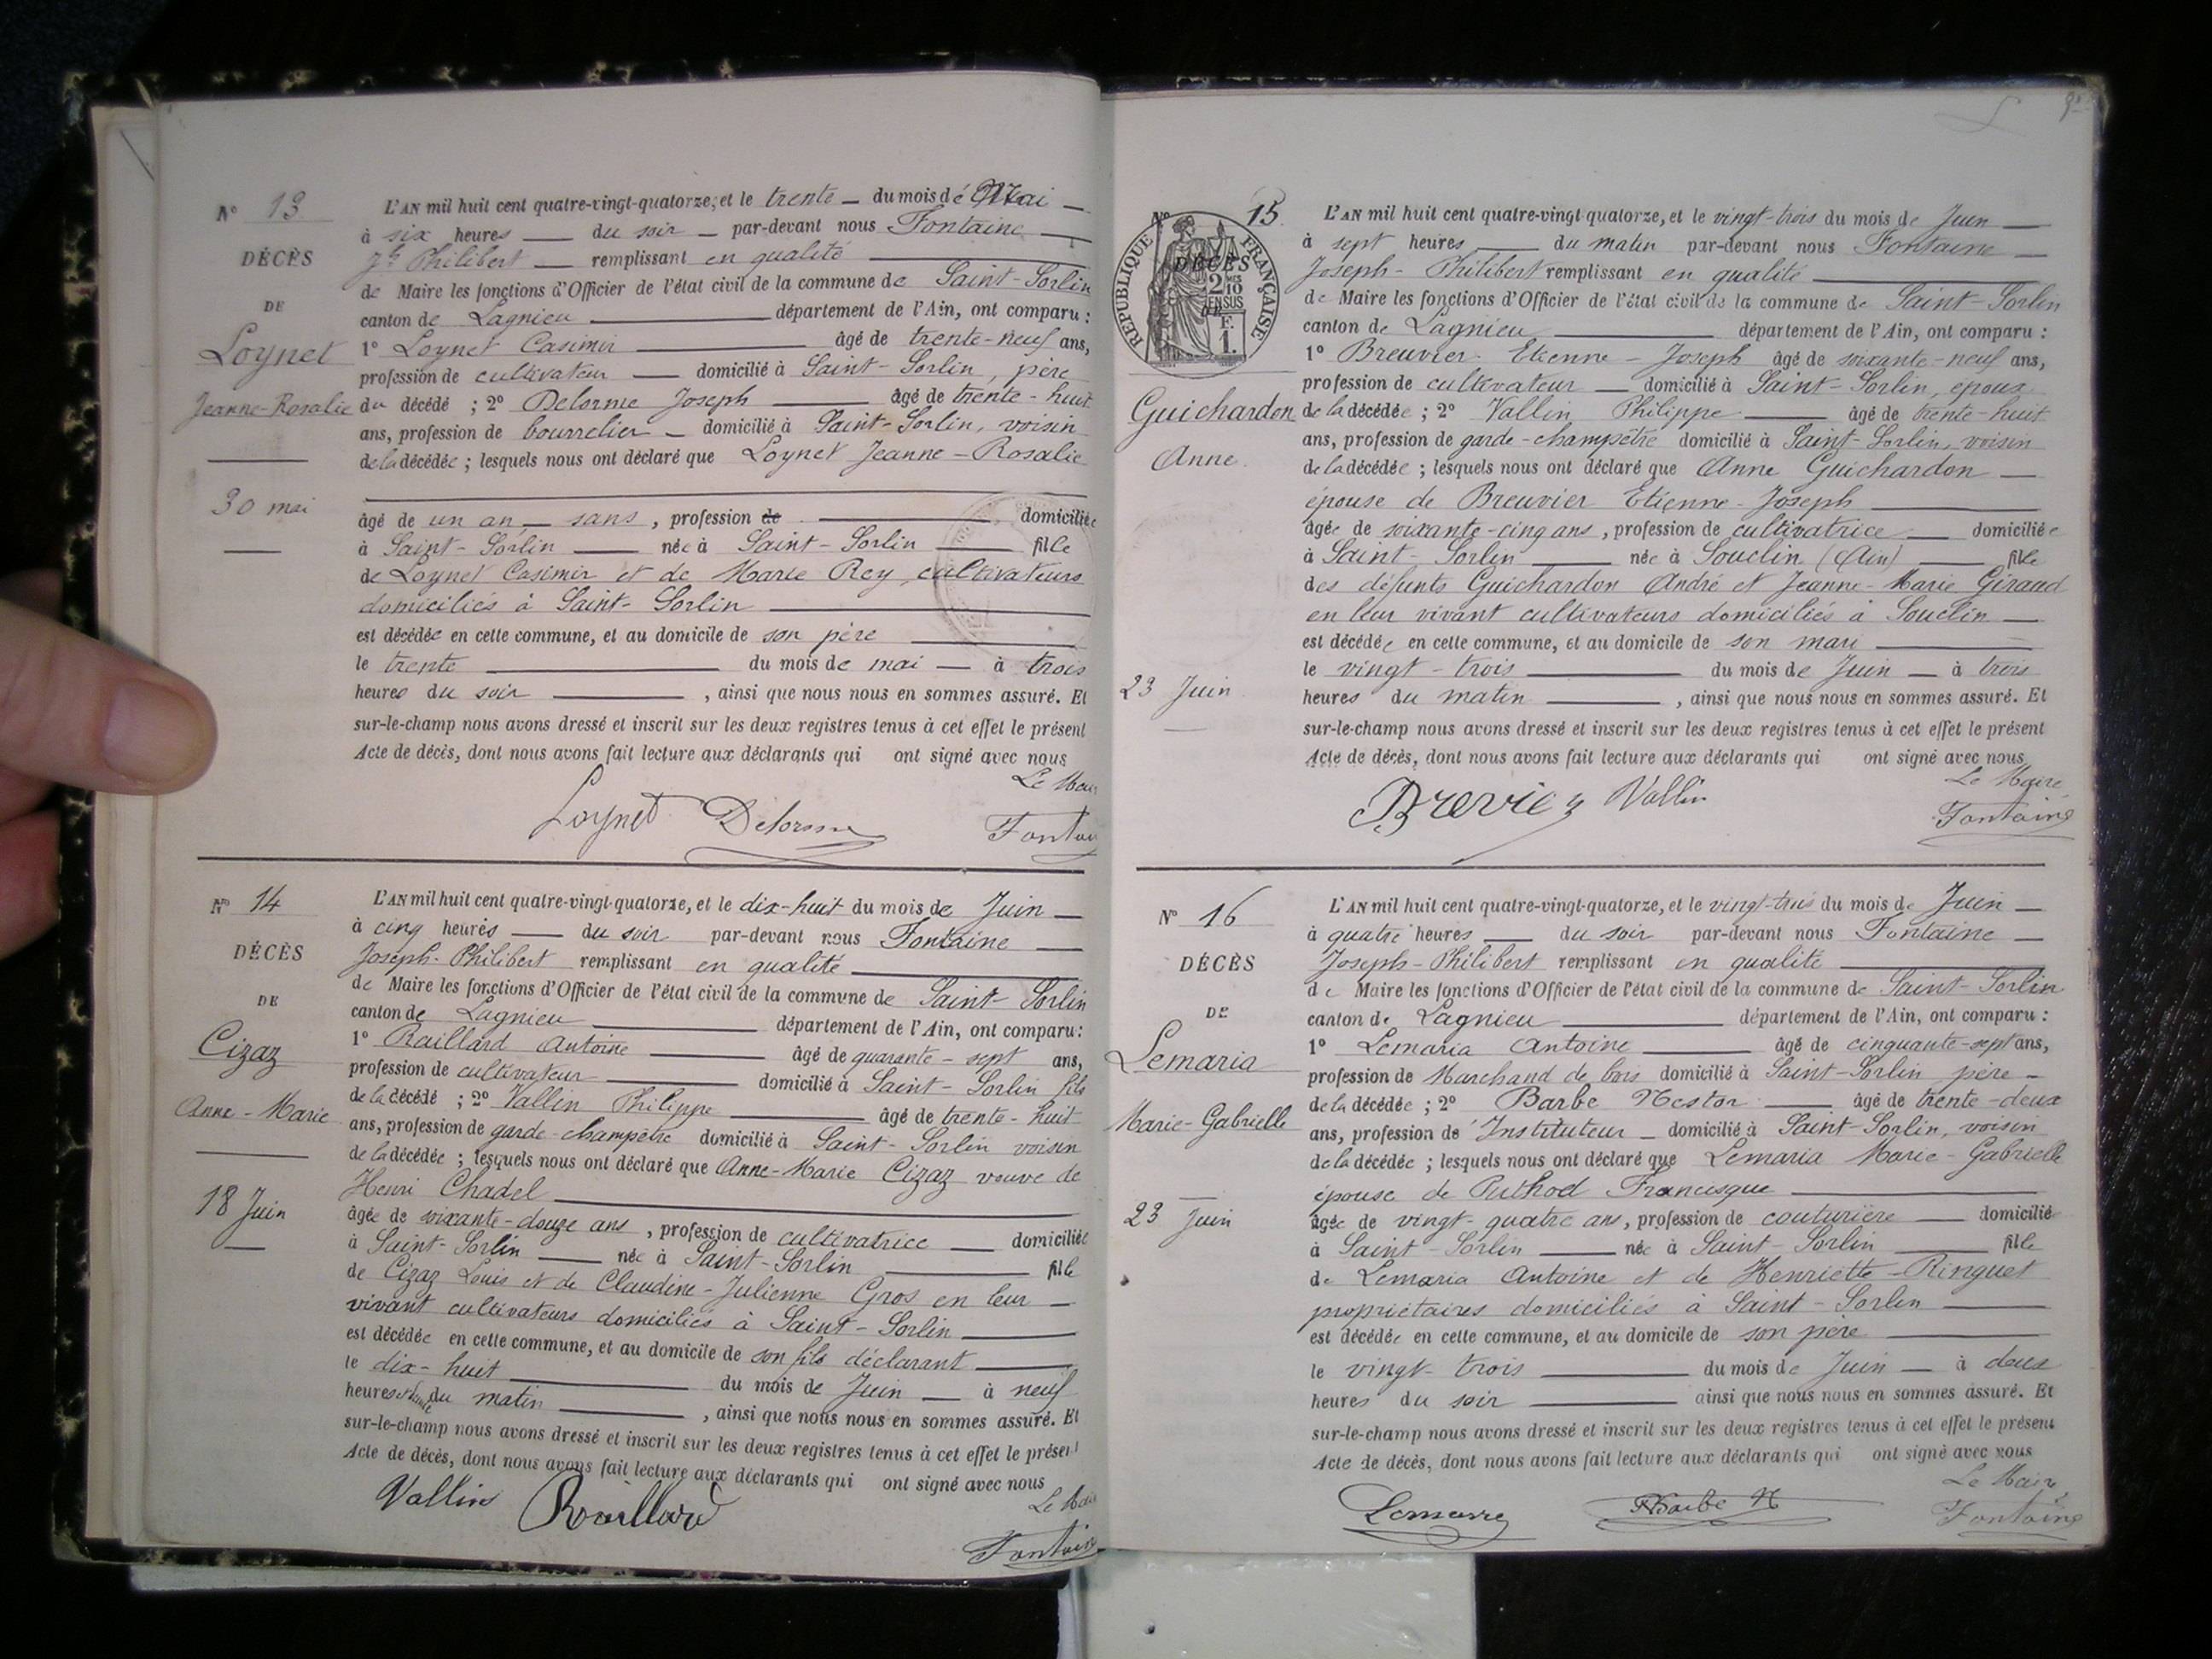 N° 13
DÉCÈS
DE
Loynet
Jeanne-Rosalie
30 mai
L'AN mil huit cent quatre-vingt-quatorze, et le trente du mois de Mai
à six heures du soir par-devant nous Fontaine
Jh Philibert remplissant en qualité
de Maire les fonctions d'Officier de l'état civil de la commune de Saint-Sorlin
canton de Lagnieu département de l'Ain, ont comparu :
1° Loynet Casimir âgé de trente-neuf ans,
profession de cultivateur domicilié à Saint-Sorlin, père
du décédé ; 2° Delorme Joseph âgé de trente-huit
ans, profession de bourrelier domicilié à Saint-Sorlin, voisin
de la décédée ; lesquels nous ont déclaré que Loynet Jeanne-Rosalie
âgé de un an sans, profession de domiciliée
à Saint-Sorlin née à Saint-Sorlin fille
de Loynet Casimir et de Marie Rey, cultivateurs
domiciliés à Saint-Sorlin
est décédée en cette commune, et au domicile de son père
le trente du mois de mai à trois
heures du soir , ainsi que nous nous en sommes assuré. Et
sur-le-champ nous avons dressé et inscrit sur les deux registres tenus à cet effet le présent
Acte de décès, dont nous avons fait lecture aux déclarants qui ont signé avec nous
Le Mair
Loynet Delorme Fontai
N° 14
DÉCÈS
DE
Cizaz
Anne-Marie
18 Juin
L'AN mil huit cent quatre-vingt-quatorze, et le dix-huit du mois de Juin
à cinq heures du soir par-devant nous Fontaine
Joseph-Philibert remplissant en qualité
de Maire les fonctions d'Officier de l'état civil de la commune de Saint-Sorlin
canton de Lagnieu département de l'Ain, ont comparu :
1° Raillard Antoine âgé de quarante-sept ans,
profession de cultivateur domicilié à Saint-Sorlin fils
de la décédé ; 2° Vallin Philippe âgé de trente-huit
ans, profession de garde-champêtre domicilié à Saint-Sorlin voisin
de la décédée ; lesquels nous ont déclaré que Anne-Marie Cizaz veuve de
Henri Chadel
âgée de soixante-douze ans , profession de cultivatrice domiciliée
à Saint-Sorlin née à Saint-Sorlin fille
de Cizaz Louis et de Claudine-Julienne Gros en leur
vivant cultivateurs domiciliés à Saint-Sorlin
est décédée en cette commune, et au domicile de son fils déclarant
le dix-huit du mois de Juin à neuf
heures du matin , ainsi que nous nous en sommes assuré. Et
sur-le-champ nous avons dressé et inscrit sur les deux registres tenus à cet effet le présent
Acte de décès, dont nous avons fait lecture aux déclarants qui ont signé avec nous
Le Mai
Vallin Raillard Fontain
N° 15
RÉPUBLIQUE FRANÇAISE
DÉCÈS
2/10
EN SUS
F.
1.
Guichardon
Anne
23 Juin
L'AN mil huit cent quatre-vingt-quatorze, et le vingt-trois du mois de Juin
à sept heures du matin par-devant nous Fontaine
Joseph-Philibert remplissant en qualité
de Maire les fonctions d'Officier de l'état civil de la commune de Saint-Sorlin
canton de Lagnieu département de l'Ain, ont comparu :
1° Breuvier Etienne-Joseph âgé de soixante-neuf ans,
profession de cultivateur domicilié à Saint-Sorlin, époux
de la décédée ; 2° Vallin Philippe âgé de trente-huit
ans, profession de garde-champêtre domicilié à Saint-Sorlin, voisin
de la décédée ; lesquels nous ont déclaré que Anne Guichardon
épouse de Breuvier Etienne-Joseph
âgée de soixante-cinq ans , profession de cultivatrice domiciliée
à Saint-Sorlin née à Souclin (Ain) fille
des défunts Guichardon André et Jeanne-Marie Giraud
en leur vivant cultivateurs domiciliés à Souclin
est décédée en cette commune, et au domicile de son mari
le vingt-trois du mois de Juin à trois
heures du matin , ainsi que nous nous en sommes assuré. Et
sur-le-champ nous avons dressé et inscrit sur les deux registres tenus à cet effet le présent
Acte de décès, dont nous avons fait lecture aux déclarants qui ont signé avec nous
Le Maire
Brevier Vallin Fontaine
N° 16
DÉCÈS
DE
Lemaria
Marie-Gabrielle
23 Juin
L'AN mil huit cent quatre-vingt-quatorze, et le vingt-trois du mois de Juin
à quatre heures du soir par-devant nous Fontaine
Joseph-Philibert remplissant en qualité
de Maire les fonctions d'Officier de l'état civil de la commune de Saint-Sorlin
canton de Lagnieu département de l'Ain, ont comparu :
1° Lemaria Antoine âgé de cinquante-sept ans,
profession de Marchand de bois domicilié à Saint-Sorlin père
de la décédée ; 2° Barbe Nestor âgé de trente-deux
ans, profession de Instituteur domicilié à Saint-Sorlin, voisin
de la décédée ; lesquels nous ont déclaré que Lemaria Marie-Gabrielle
épouse de Puthod Francisque
âgée de vingt-quatre ans, profession de couturière domicilié
à Saint-Sorlin née à Saint-Sorlin fille
de Lemaria Antoine et de Henriette-Ringuet
propriétaires domiciliés à Saint-Sorlin
est décédée en cette commune, et au domicile de son père
le vingt-trois du mois de Juin à deux
heures du soir ainsi que nous nous en sommes assuré. Et
sur-le-champ nous avons dressé et inscrit sur les deux registres tenus à cet effet le présent
Acte de décès, dont nous avons fait lecture aux déclarants qui ont signé avec nous
Le Maire
Barbe N Fontaine